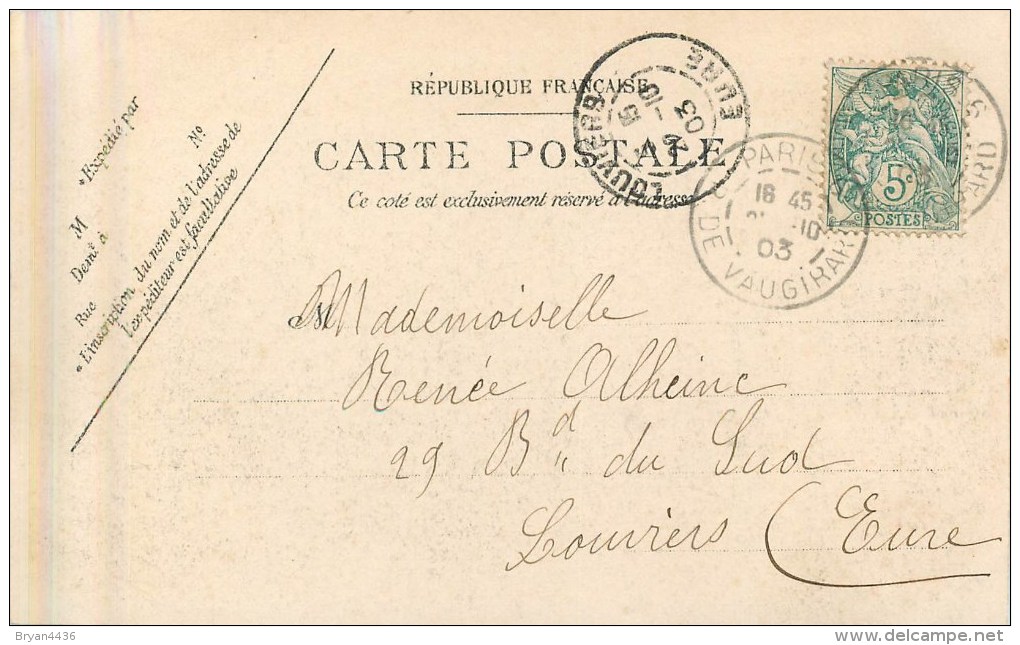 RÉPUBLIQUE FRANÇAISE
CARTE POSTALE
Ce coté est exclusivement réservé à l'adresse
Expédié par
M
Demt à
Rue
No
L'inscription du nom et de l'adresse de
l'expéditeur est facultative
LOUVIERS
EURE
10
03
PARIS
18 45
10
03
DE VAUGIRARD
5c
POSTES
Mademoiselle
Renée Alheinc
29 Bd du Sud
Louviers (Eure
Bryan4436
delcampe.net